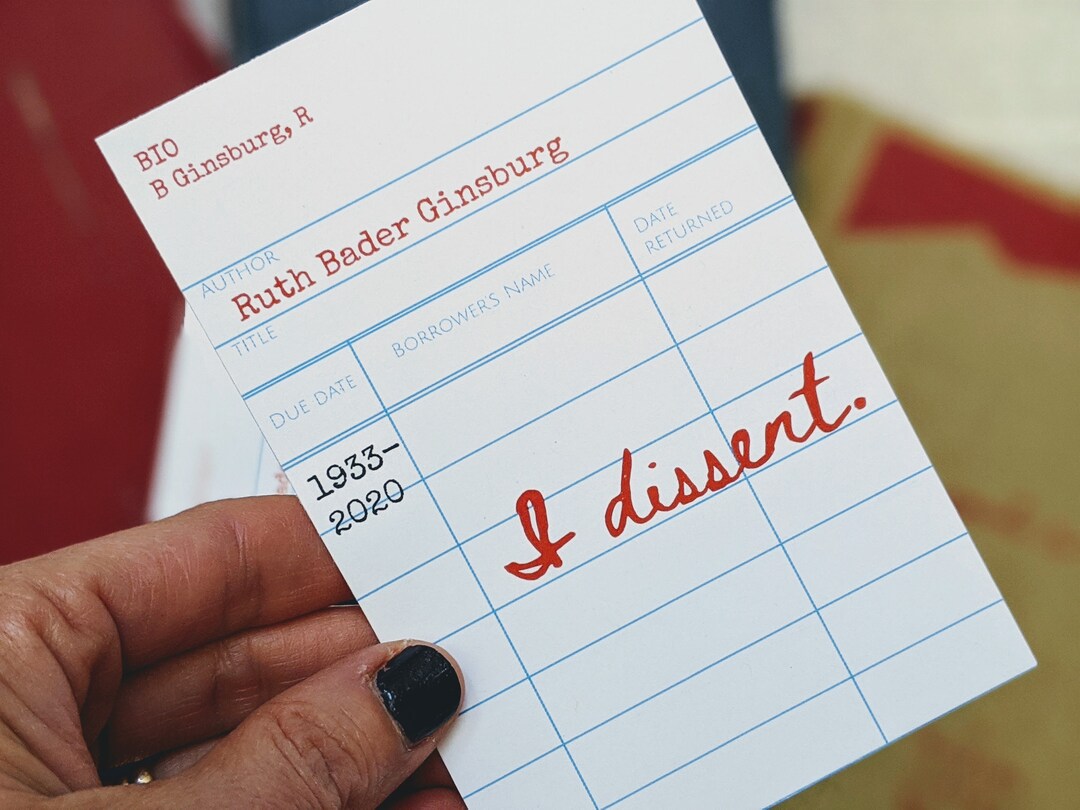 BIO
B Ginsburg, R
AUTHOR
Ruth Bader Ginsburg
TITLE
DUE DATE
BORROWER'S NAME
DATE
RETURNED
1933-
2020
I dissent.